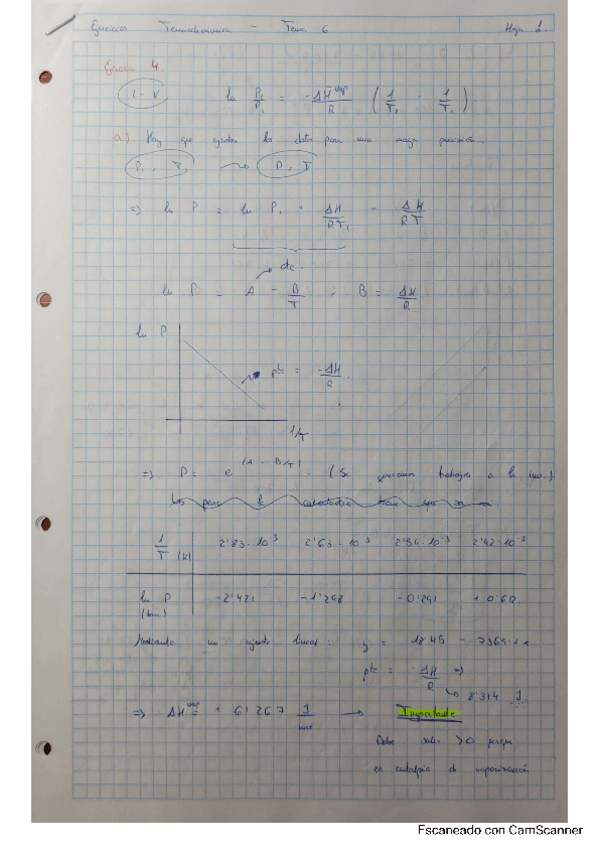 Ejercicios Termodinámica - Tema 6 Hoja 1
Ejercicio 4
L - V ln P₂/P₁ = -ΔH^vap/R (1/T₂ - 1/T₁)
a) Hay que ajustar los datos para una mayor precisión.
P₁, T₁ → P, T
=> ln P = ln P₁ + ΔH/RT₁ - ΔH/RT
cte
ln P = A - B/T ; B = ΔH/R
ln P
pte = -ΔH/R
1/T
=> P = e^(A - B/T) (Si queremos trabajar a la inv.)
1/T (K) 2'83·10⁻³ 2'63·10⁻³ 2'54·10⁻³ 2'42·10⁻³
ln P -2'421 -1'298 -0'291 +0'69
Mediante un ajuste lineal: y = 18'45 - 7369'1 x
pte = -ΔH/R =>
8'314 J
=> ΔH^vap = + 61267 J/mol → Importante
Debe salir >0 porque
es entalpía de vaporización
Escaneado con CamScanner